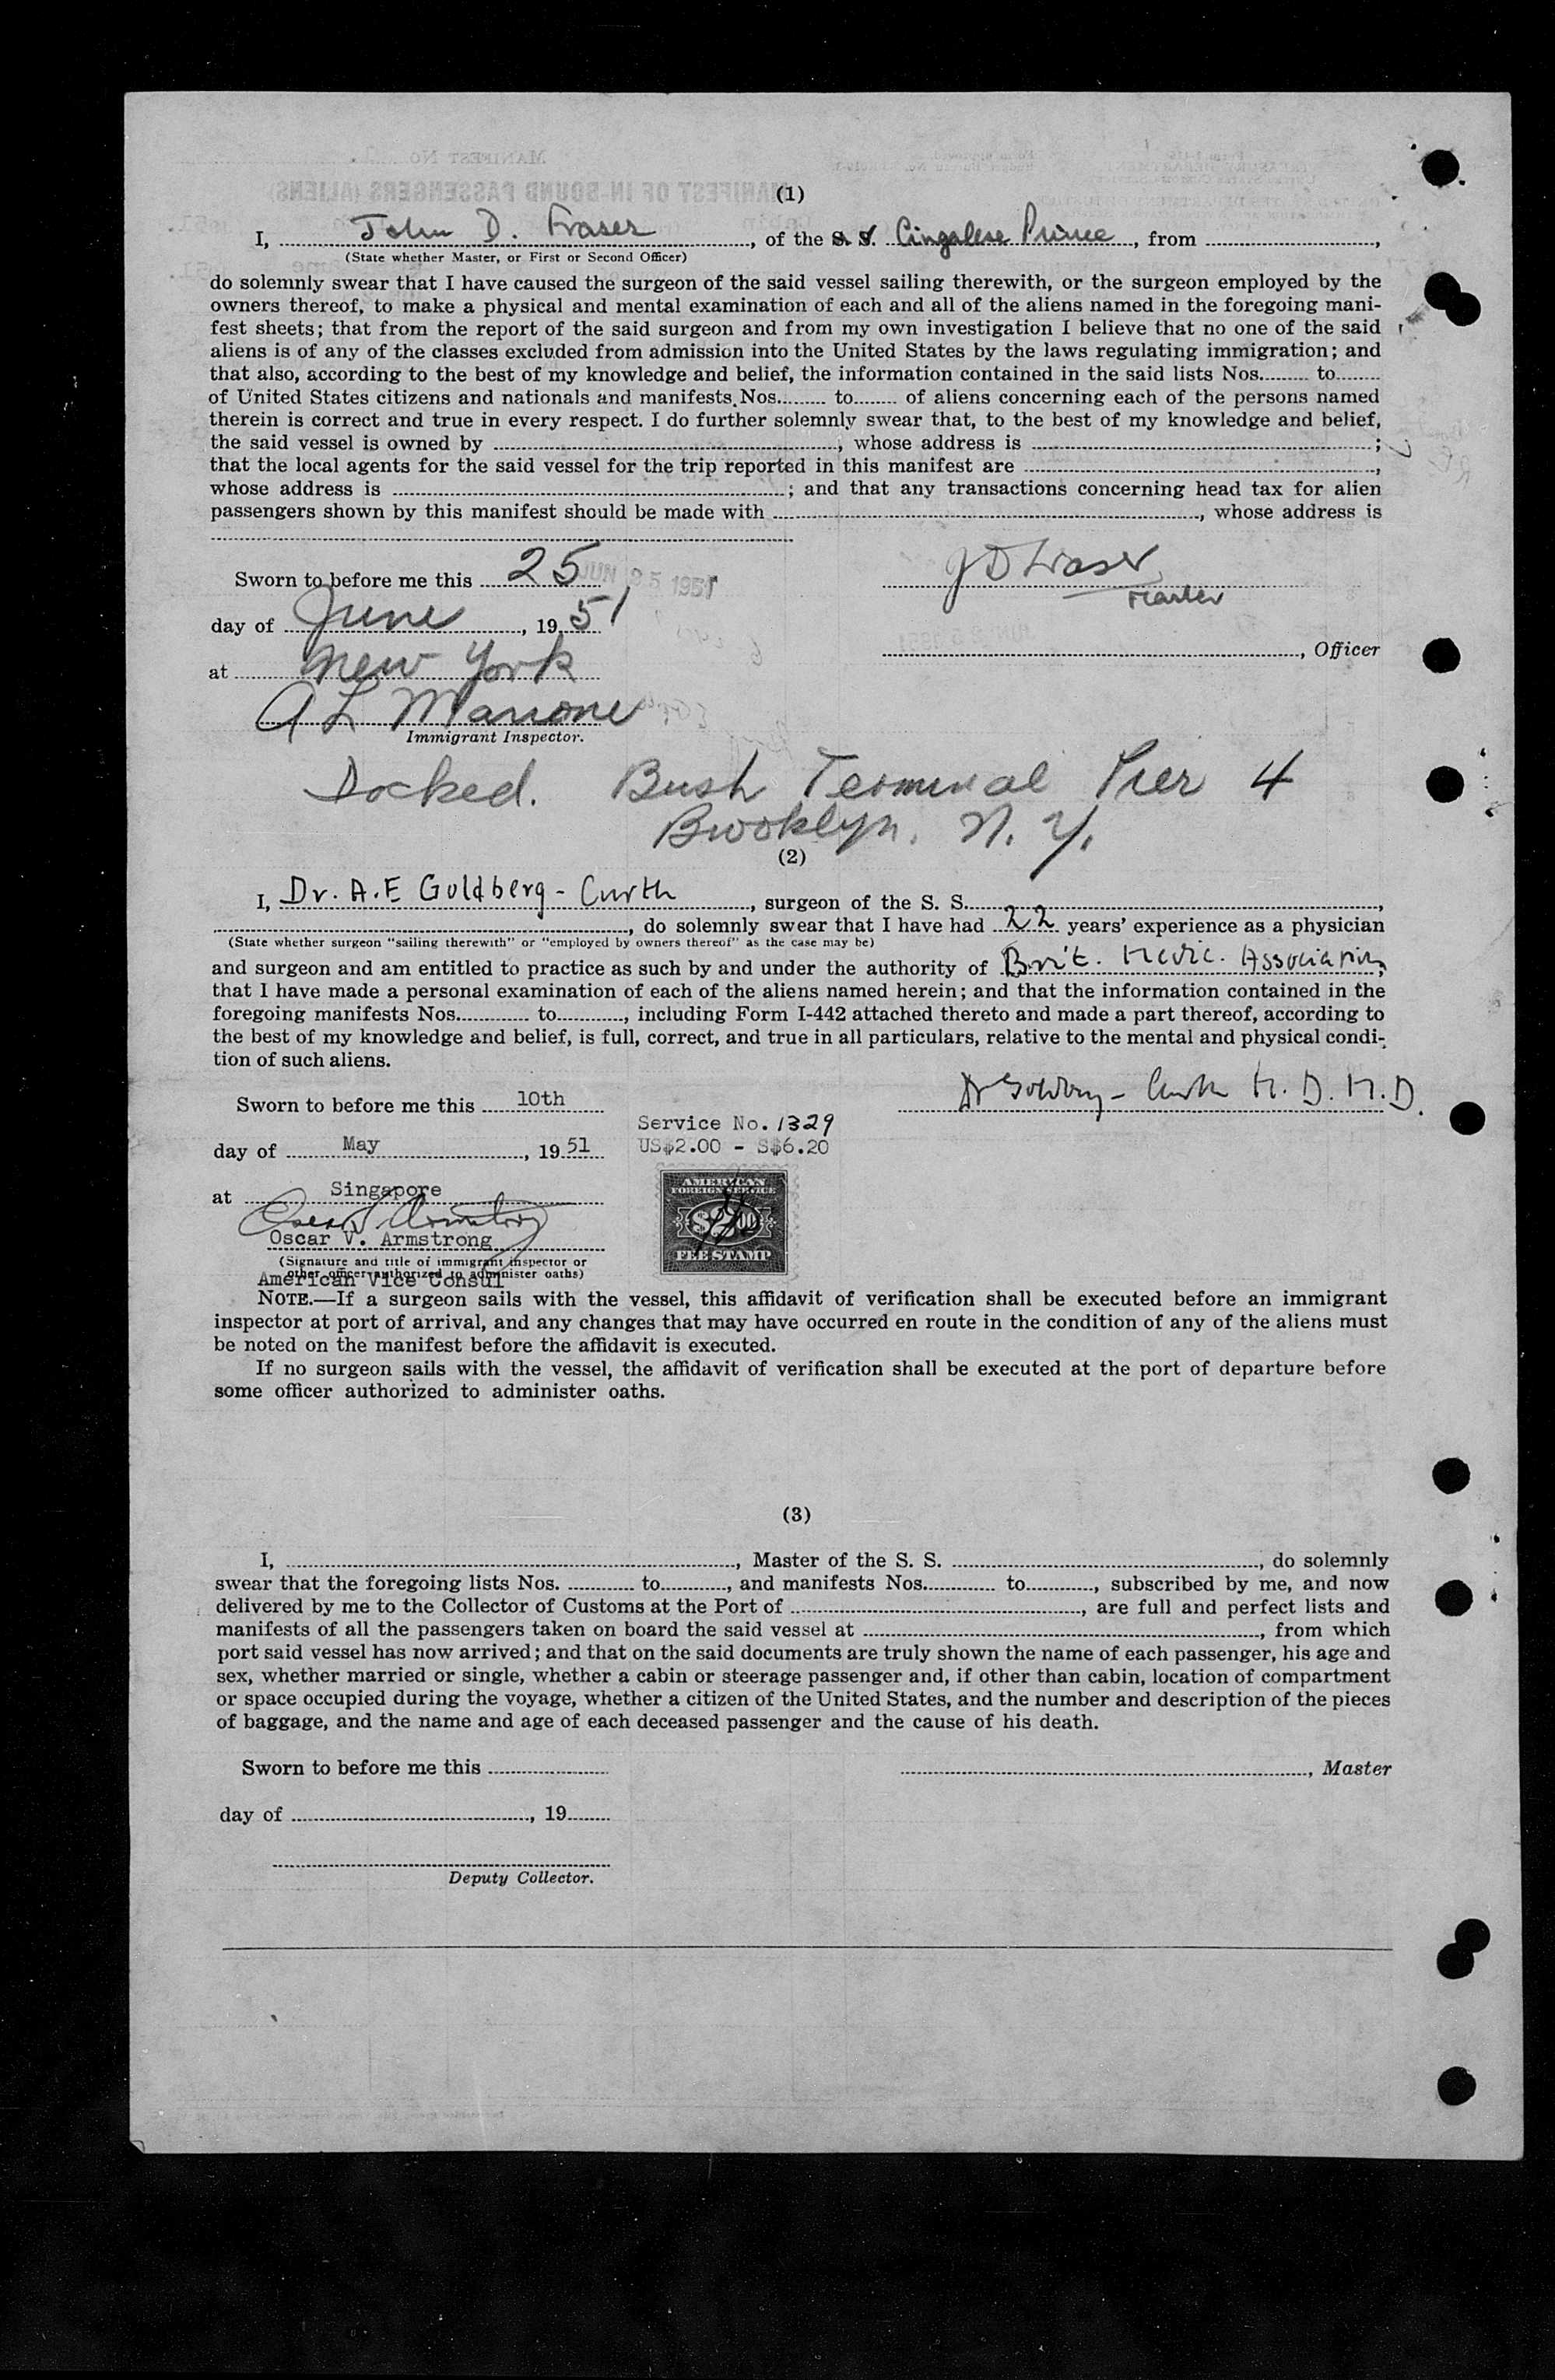 (1)
I, John D. Fraser, of the S. S. Cingalese Prince, from ,
(State whether Master, or First or Second Officer)
do solemnly swear that I have caused the surgeon of the said vessel sailing therewith, or the surgeon employed by the
owners thereof, to make a physical and mental examination of each and all of the aliens named in the foregoing mani-
fest sheets; that from the report of the said surgeon and from my own investigation I believe that no one of the said
aliens is of any of the classes excluded from admission into the United States by the laws regulating immigration; and
that also, according to the best of my knowledge and belief, the information contained in the said lists Nos. to
of United States citizens and nationals and manifests Nos. to of aliens concerning each of the persons named
therein is correct and true in every respect. I do further solemnly swear that, to the best of my knowledge and belief,
the said vessel is owned by , whose address is ;
that the local agents for the said vessel for the trip reported in this manifest are ,
whose address is ; and that any transactions concerning head tax for alien
passengers shown by this manifest should be made with , whose address is
Sworn to before me this 25 JUN 25 1951 J D Fraser
Master
day of June, 1951
, Officer
at New York
A L Marrone
Immigrant Inspector.
Docked. Bush Terminal Pier 4
Brooklyn. N. Y.
(2)
I, Dr. A.E Goldberg - Curth, surgeon of the S. S. ,
, do solemnly swear that I have had 22 years' experience as a physician
(State whether surgeon "sailing therewith" or "employed by owners thereof" as the case may be)
and surgeon and am entitled to practice as such by and under the authority of Brit. Medic. Association;
that I have made a personal examination of each of the aliens named herein; and that the information contained in the
foregoing manifests Nos. to , including Form I-442 attached thereto and made a part thereof, according to
the best of my knowledge and belief, is full, correct, and true in all particulars, relative to the mental and physical condi-
tion of such aliens.
Dr Goldberg - Curth M. D. M. D.
Sworn to before me this 10th
Service No. 1329
day of May, 1951 US$2.00 - S$6.20
at Singapore
AMERICAN
FOREIGN SERVICE
$2.00
FEE STAMP
Oscar V. Armstrong
Oscar V. Armstrong
(Signature and title of immigrant inspector or
other officer authorized to administer oaths)
American Vice Consul
NOTE.—If a surgeon sails with the vessel, this affidavit of verification shall be executed before an immigrant
inspector at port of arrival, and any changes that may have occurred en route in the condition of any of the aliens must
be noted on the manifest before the affidavit is executed.
If no surgeon sails with the vessel, the affidavit of verification shall be executed at the port of departure before
some officer authorized to administer oaths.
(3)
I, , Master of the S. S. , do solemnly
swear that the foregoing lists Nos. to , and manifests Nos. to , subscribed by me, and now
delivered by me to the Collector of Customs at the Port of , are full and perfect lists and
manifests of all the passengers taken on board the said vessel at , from which
port said vessel has now arrived; and that on the said documents are truly shown the name of each passenger, his age and
sex, whether married or single, whether a cabin or steerage passenger and, if other than cabin, location of compartment
or space occupied during the voyage, whether a citizen of the United States, and the number and description of the pieces
of baggage, and the name and age of each deceased passenger and the cause of his death.
Sworn to before me this , Master
day of , 19
Deputy Collector.